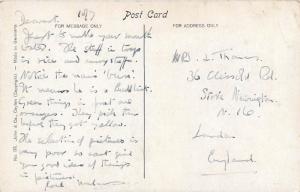 Post Card
FOR MESSAGE ONLY
FOR ADDRESS ONLY
Dearest
Just to make your mouth
water. The stuff in trays
is rice and curry stuffs.
Notice the man's
It means he is a Buddhist.
Green things in front are
oranges. They pick them
before they get yellow.
The selection of pictures is
very poor so can't give
you good idea of things
in pictures.
Love
MRS. J. Thomas
36 Clissold Rd.
Stoke Newington
N. 16
London
England